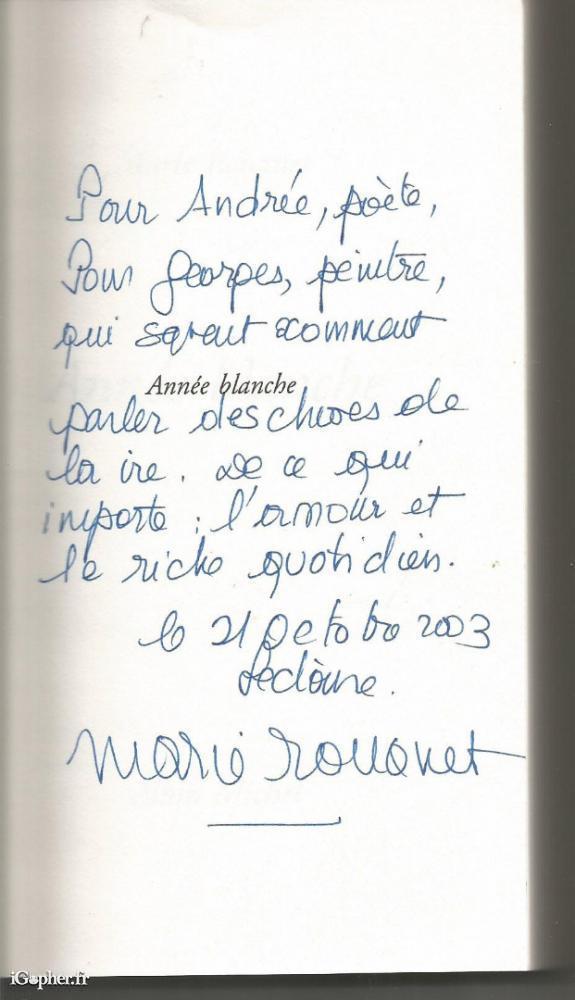 Pour Andrée, poète,
Pour Georges, peintre,
qui savent comment
Année blanche
parler des choses de
la vie. De ce qui
importe : l'amour et
le riche quotidien.
le 21 Octobre 2003
Marie Rouanet
iGopher.fr